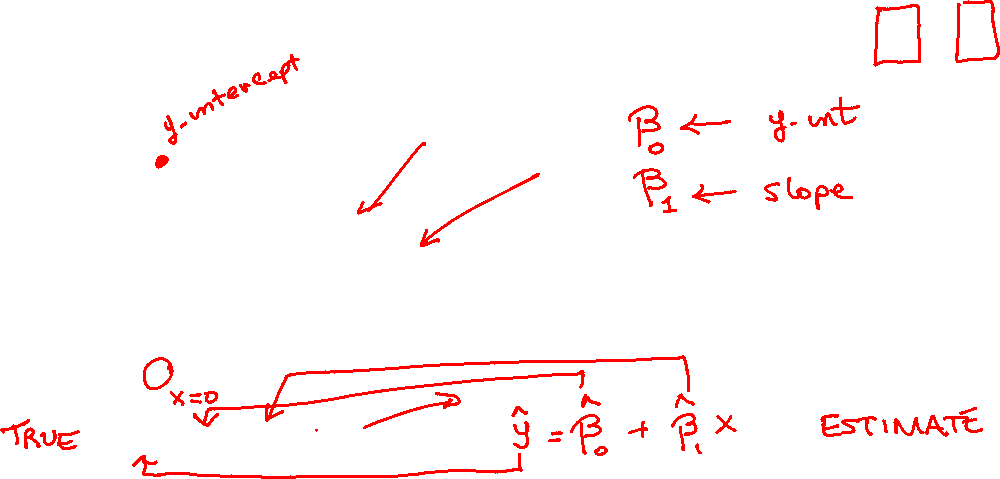 y-intercept
β₀ ← y-int
β₁ ← slope
x=0
TRUE
ŷ = β̂₀ + β̂₁ x
ESTIMATE